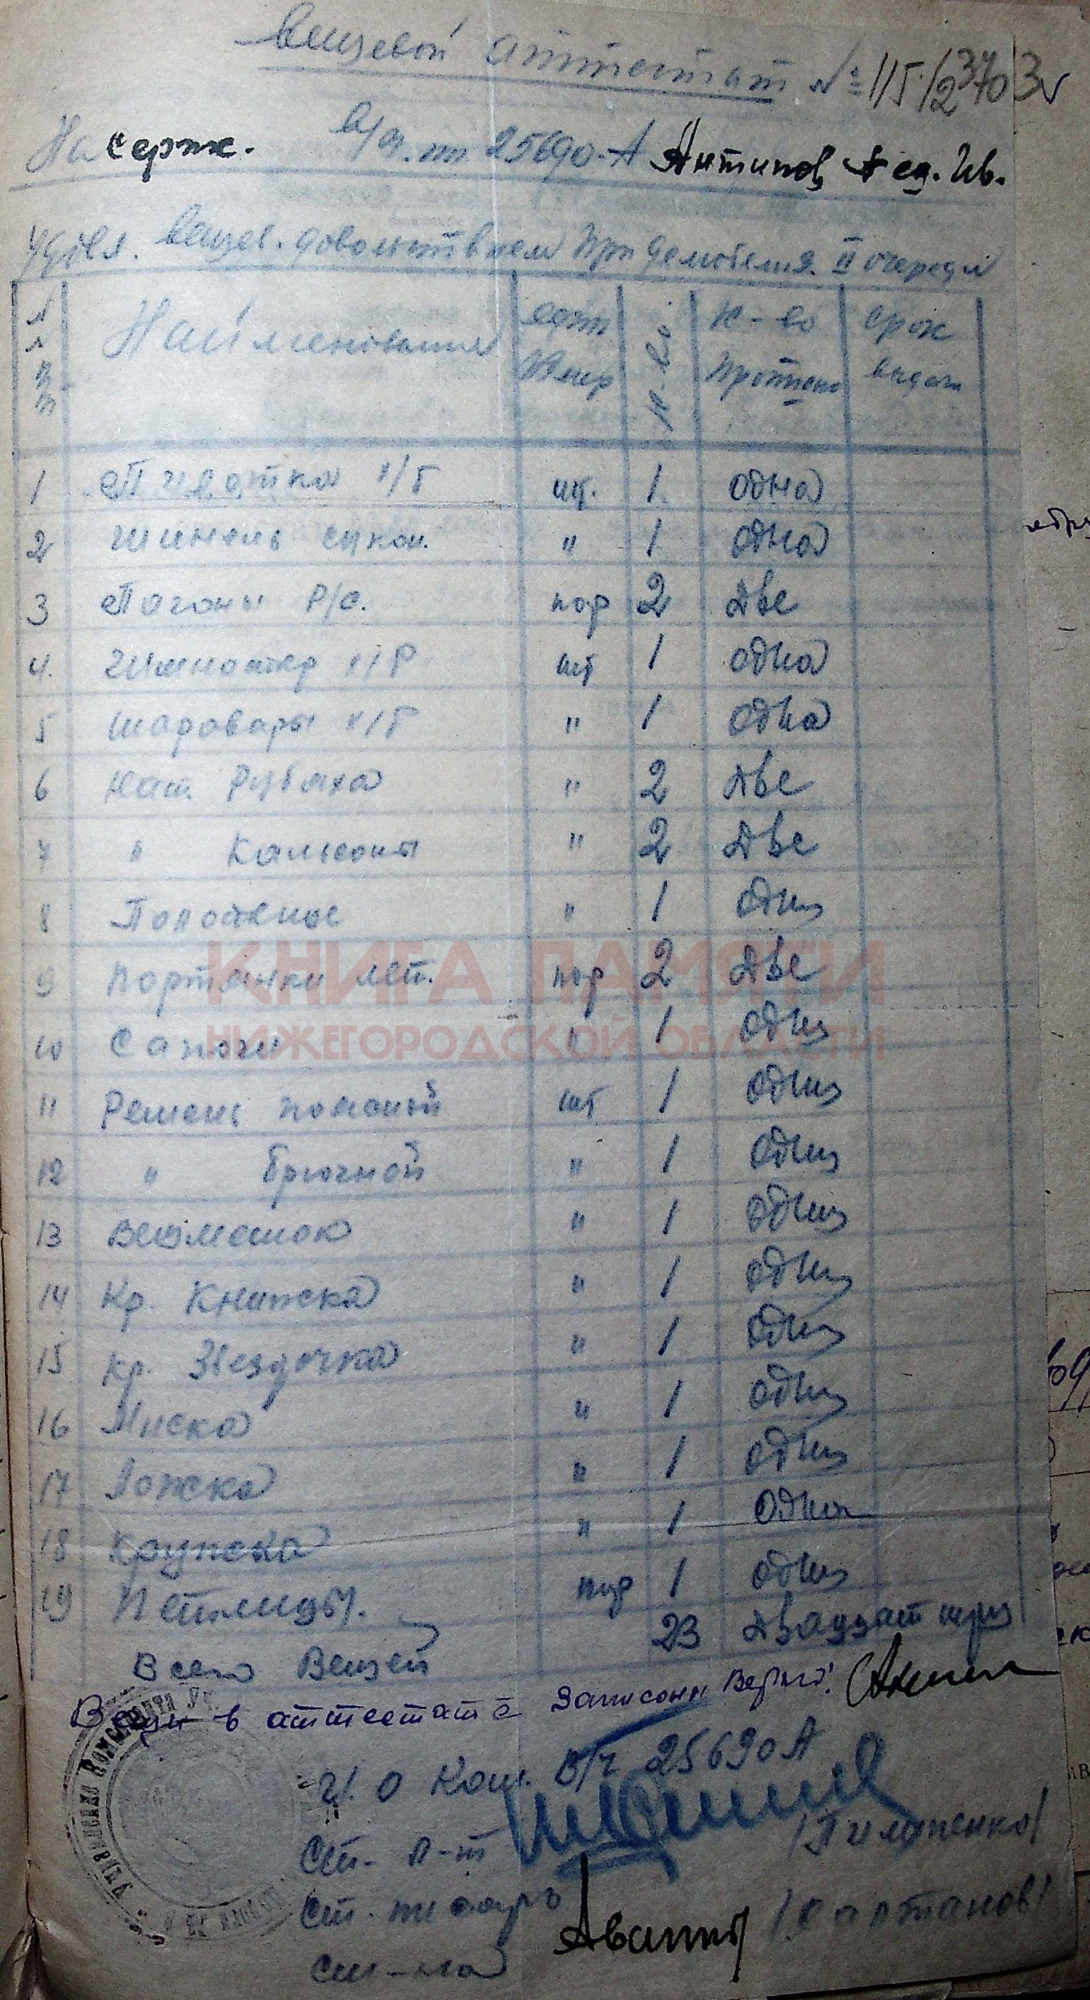 Вещевой аттестат № 115/23703
На серж. в/ч. пп 25690-А Антипов Фед. Ив.
Удовл. вещев. довольствием При демобилиз. II очереди
№№ пп Наименование един измер к-во к-во Прописью срок выдачи
1 Пилотка х/б шт. 1 одна
2 Шинель сукон. " 1 одна
3 Пагоны Р/с. пар 2 две
4. Гимностер х/б шт 1 одна
5 Шаровары х/б " 1 одна
6 Нат. Рубаха " 2 две
7 " Кальсоны " 2 две
8 Полотенце " 1 один
9 Портянки лет. пар 2 две
10 Сапоги " 1 один
11 Ремень поясной шт 1 один
12 " Брючной " 1 один
13 Вещмешок " 1 один
14 Кр. Книжка " 1 один
15 Кр. Звездочка " 1 один
16 Миска " 1 один
17 Ложка " 1 один
18 Кружка " 1 одна
19 Петлицы. пар 1 один
Всего Вещей 23 двадцат три
Вещи в аттестате записоны верно:
КНИГА ПАМЯТИ
НИЖЕГОРОДСКОЙ ОБЛАСТИ
О Ком. В/ч 25690 А
Ст. л-т /Пилипенко/
Ст. писарь
ст-на /Салтанов/